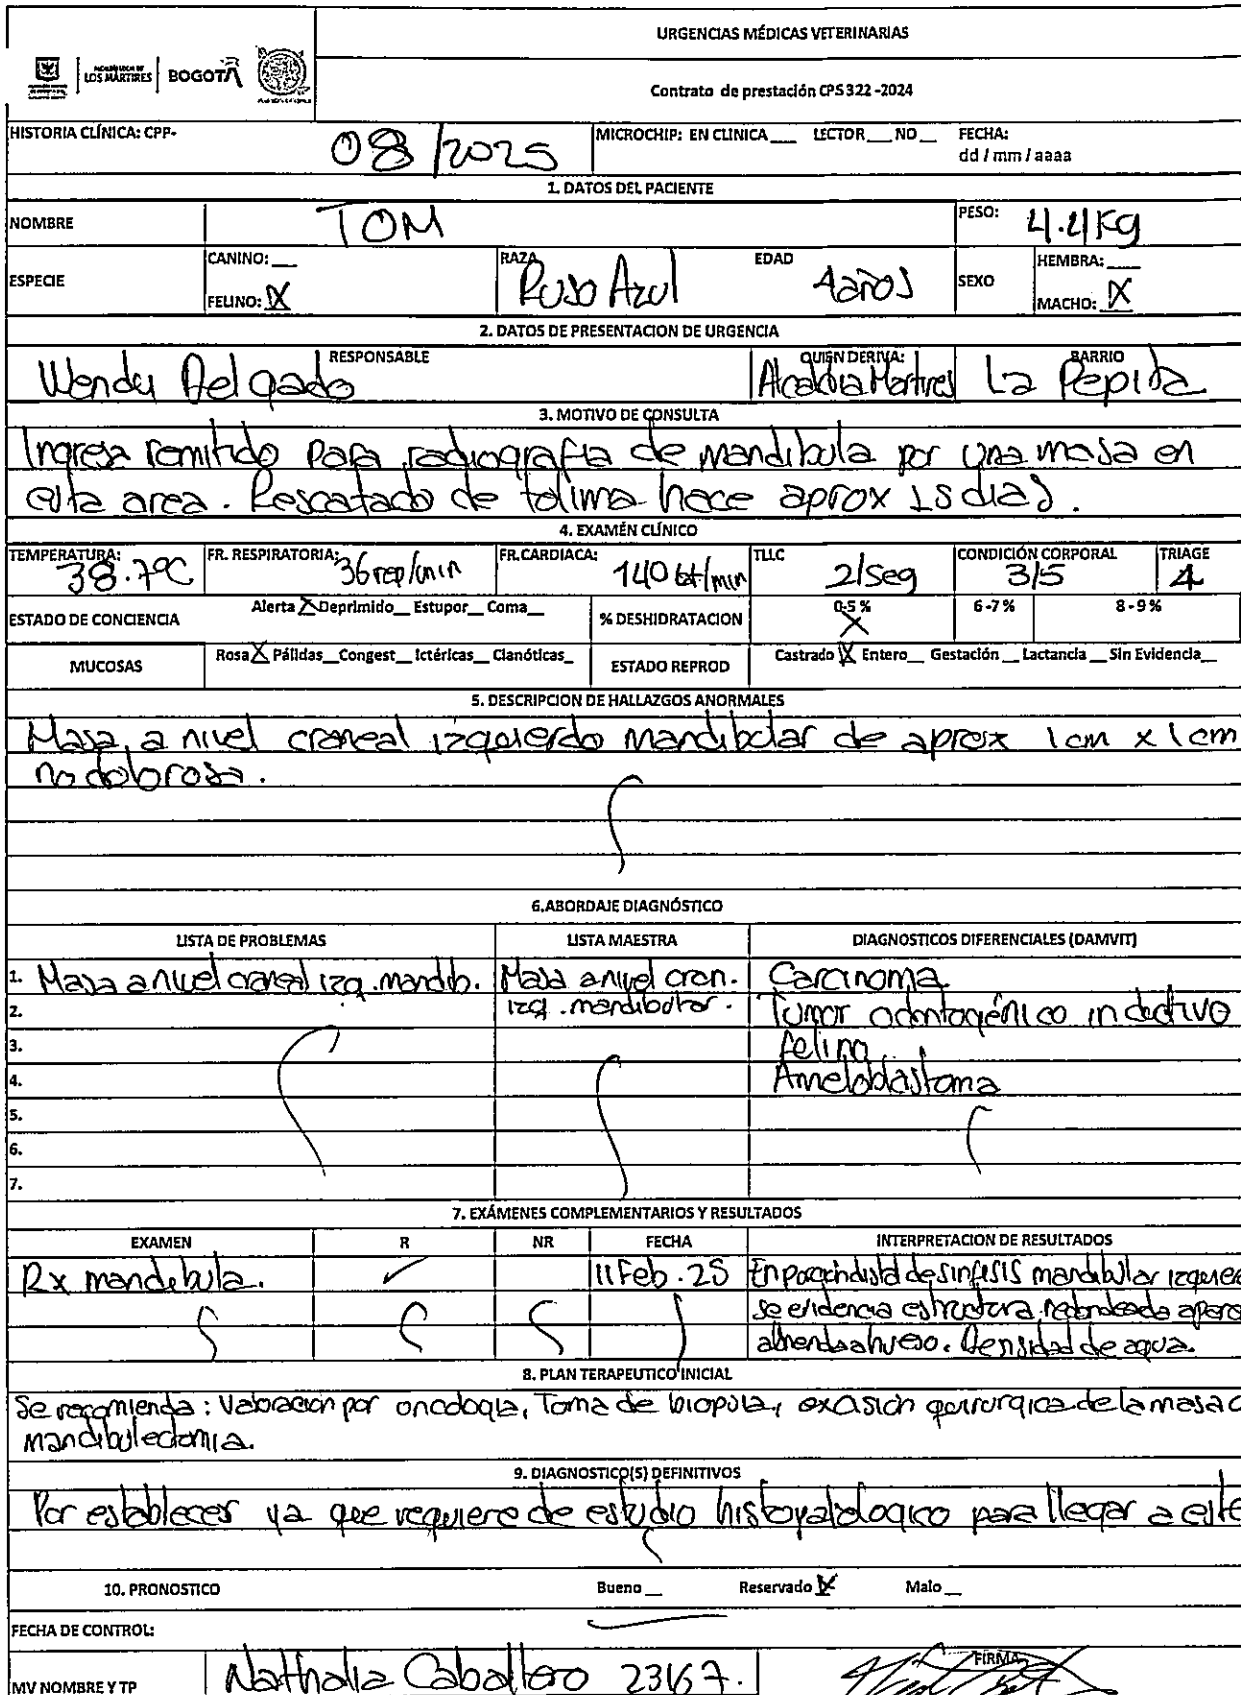 URGENCIAS MÉDICAS VETERINARIAS
LOS MÁRTIRES BOGOTÁ
Contrato de prestación CPS 322 -2024
HISTORIA CLÍNICA: CPP- 08/2025 MICROCHIP: EN CLINICA___ LECTOR___NO__ FECHA:
dd / mm / aaaa
1. DATOS DEL PACIENTE
NOMBRE TOM PESO: 4.4 Kg
ESPECIE CANINO: __ RAZA Ruso Azul EDAD 4 años SEXO HEMBRA: ___
FELINO: X MACHO: X
2. DATOS DE PRESENTACION DE URGENCIA
RESPONSABLE QUIEN DERIVA: BARRIO
Wendy Delgado Alcaldia Martires La Pepita
3. MOTIVO DE CONSULTA
Ingresa remitido para radiografia de mandibula por una masa en
esta area. Rescatado de tolima hace aprox 15 dias.
4. EXAMÉN CLÍNICO
TEMPERATURA: FR. RESPIRATORIA: FR.CARDIACA: TLLC CONDICIÓN CORPORAL TRIAGE
38.7°C 36 rep/min 140 lat/min 2/seg 3/5 4
ESTADO DE CONCIENCIA Alerta X Deprimido__ Estupor__ Coma__ % DESHIDRATACION 0-5 % X 6 -7 % 8 - 9 %
MUCOSAS Rosa X Pálidas__Congest__Ictéricas__Cianóticas_ ESTADO REPROD Castrado X Entero__ Gestación __ Lactancia __ Sin Evidencia__
5. DESCRIPCION DE HALLAZGOS ANORMALES
Masa a nivel craneal izquierdo mandibular de aprox 1cm x 1cm
no dolorosa.
6.ABORDAJE DIAGNÓSTICO
LISTA DE PROBLEMAS LISTA MAESTRA DIAGNOSTICOS DIFERENCIALES (DAMVIT)
1. Masa a nivel craneal izq. mandib. Masa a nivel cran. Carcinoma
2. izq. mandibular. Tumor odontogénico inductivo
3. felino.
4. Ameloblastoma
5.
6.
7.
7. EXÁMENES COMPLEMENTARIOS Y RESULTADOS
EXAMEN R NR FECHA INTERPRETACION DE RESULTADOS
Rx mandibula. ✓ 11 Feb. 25 En porcion distal de sinfisis mandibular
se evidencia estructura redondeada
hueso. Densidad de agua.
8. PLAN TERAPEUTICO INICIAL
Se recomienda: Valoracion por oncologia, Toma de biopsia, excision quirurgica de la masa o
mandibulectomia.
9. DIAGNOSTICO(S) DEFINITIVOS
Por establecer ya que requiere de estudio histopatologico para llegar a este
10. PRONOSTICO Bueno __ Reservado X Malo __
FECHA DE CONTROL:
MV NOMBRE Y TP Nathalia Caballero 23167. FIRMA